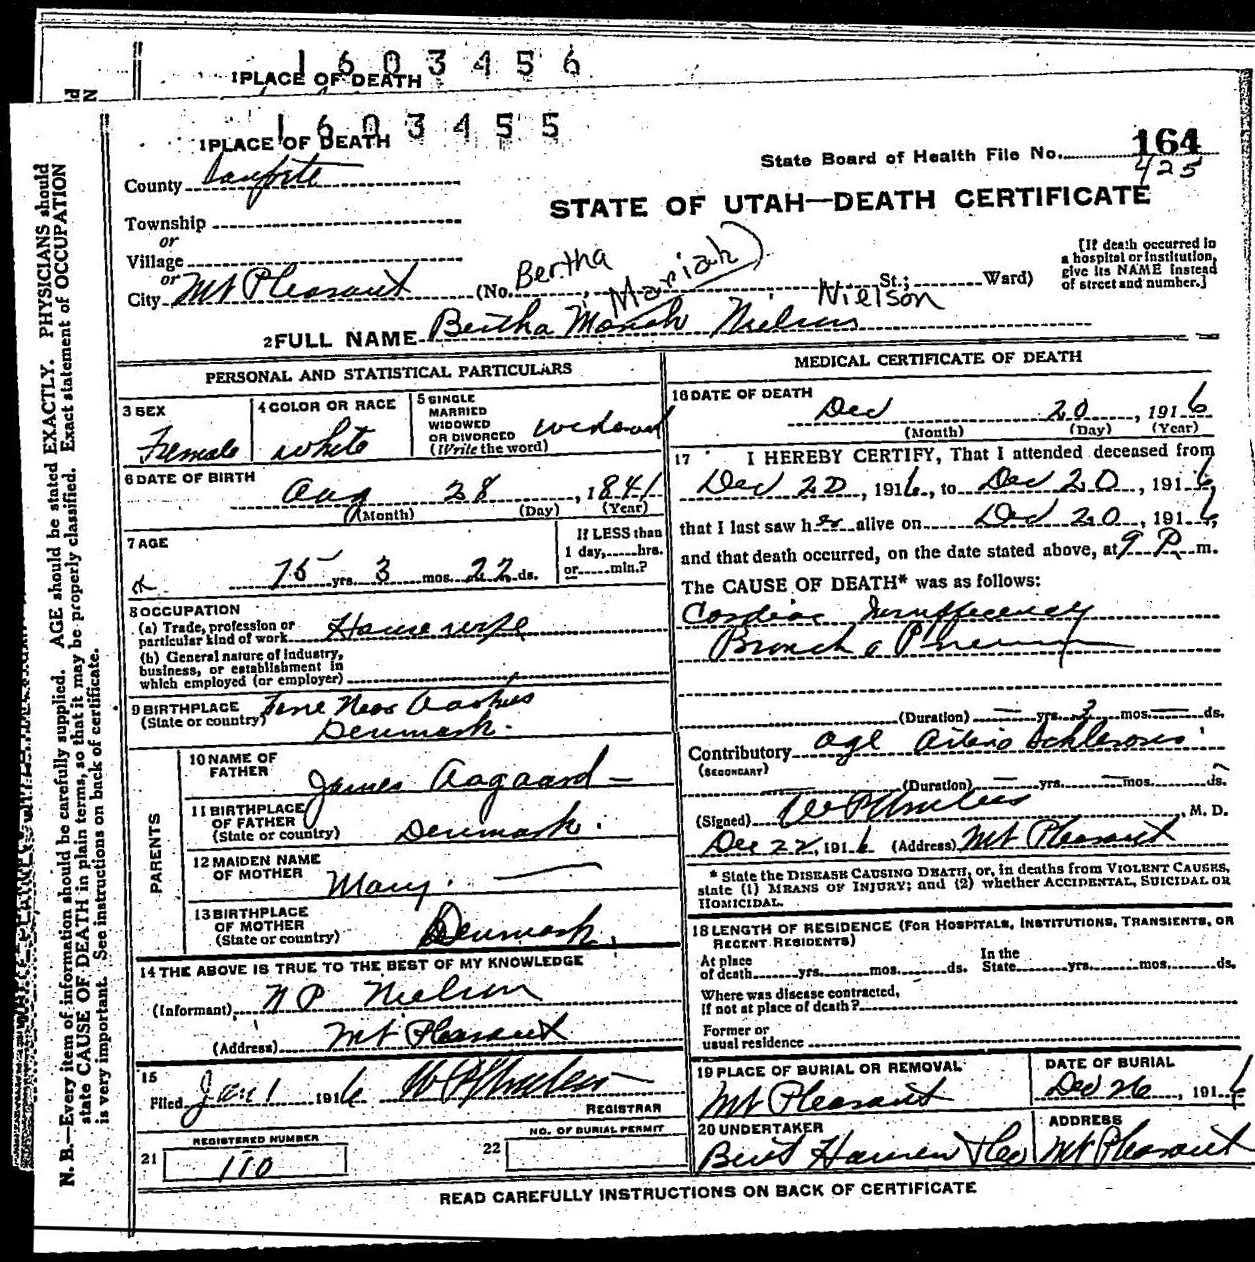 1 6 0 3 4 5 6
1 PLACE OF DEATH
1 6 0 3 4 5 5
1 PLACE OF DEATH
164
State Board of Health File No.
425
County Sanpete
STATE OF UTAH—DEATH CERTIFICATE
Township
or
Village
or
City Mt Pleasant (No. St.; Ward)
Bertha Mariah)
Nielson
[If death occurred in
a hospital or institution,
give its NAME instead
of street and number.]
2 FULL NAME Bertha Mariah Nielson
PERSONAL AND STATISTICAL PARTICULARS
3 SEX
Female
4 COLOR OR RACE
white
5 SINGLE
MARRIED
WIDOWED
OR DIVORCED
(Write the word)
widowed
6 DATE OF BIRTH
Aug 28, 1841
(Month) (Day) (Year)
7 AGE
75 yrs. 3 mos. 22 ds.
If LESS than
1 day,......hrs.
or......min.?
8 OCCUPATION
(a) Trade, profession or
particular kind of work Housewife
(b) General nature of industry,
business, or establishment in
which employed (or employer)
9 BIRTHPLACE
(State or country)
Near Aarhus
Denmark.
PARENTS
10 NAME OF
FATHER
James Aagaard
11 BIRTHPLACE
OF FATHER
(State or country) Denmark.
12 MAIDEN NAME
OF MOTHER
Mary. —
13 BIRTHPLACE
OF MOTHER
(State or country)
Denmark.
14 THE ABOVE IS TRUE TO THE BEST OF MY KNOWLEDGE
(Informant) N P Nielson
(Address) Mt Pleasant
15
Filed Jan 1 1916
REGISTRAR
21 REGISTERED NUMBER
110
22 NO. OF BURIAL PERMIT
MEDICAL CERTIFICATE OF DEATH
16 DATE OF DEATH
Dec 20, 1916
(Month) (Day) (Year)
17 I HEREBY CERTIFY, That I attended deceased from
Dec 20, 1916, to Dec 20, 1916,
that I last saw her alive on Dec 20, 1916,
and that death occurred, on the date stated above, at 9 P. m.
The CAUSE OF DEATH* was as follows:
Cardiac Insufficiency
Broncho Pneum
(Duration) — yrs. 3 mos. — ds.
Contributory age
(SECONDARY)
(Duration) — yrs. — mos. ds.
(Signed) M. D.
Dec 22, 1916 (Address) Mt Pleasant
* State the DISEASE CAUSING DEATH, or, in deaths from VIOLENT CAUSES,
state (1) MEANS OF INJURY; and (2) whether ACCIDENTAL, SUICIDAL OR
HOMICIDAL.
18 LENGTH OF RESIDENCE (FOR HOSPITALS, INSTITUTIONS, TRANSIENTS, OR
RECENT RESIDENTS)
At place
of death yrs. mos. ds.
In the
State yrs. mos. ds.
Where was disease contracted,
if not at place of death?
Former or
usual residence
19 PLACE OF BURIAL OR REMOVAL
Mt Pleasant
DATE OF BURIAL
Dec 26, 1916
20 UNDERTAKER
Bent Hansen
ADDRESS
Mt Pleasant
READ CAREFULLY INSTRUCTIONS ON BACK OF CERTIFICATE
N. B.—Every item of information should be carefully supplied. AGE should be stated EXACTLY. PHYSICIANS should
state CAUSE OF DEATH in plain terms, so that it may be properly classified. Exact statement of OCCUPATION
is very important. See instructions on back of certificate.